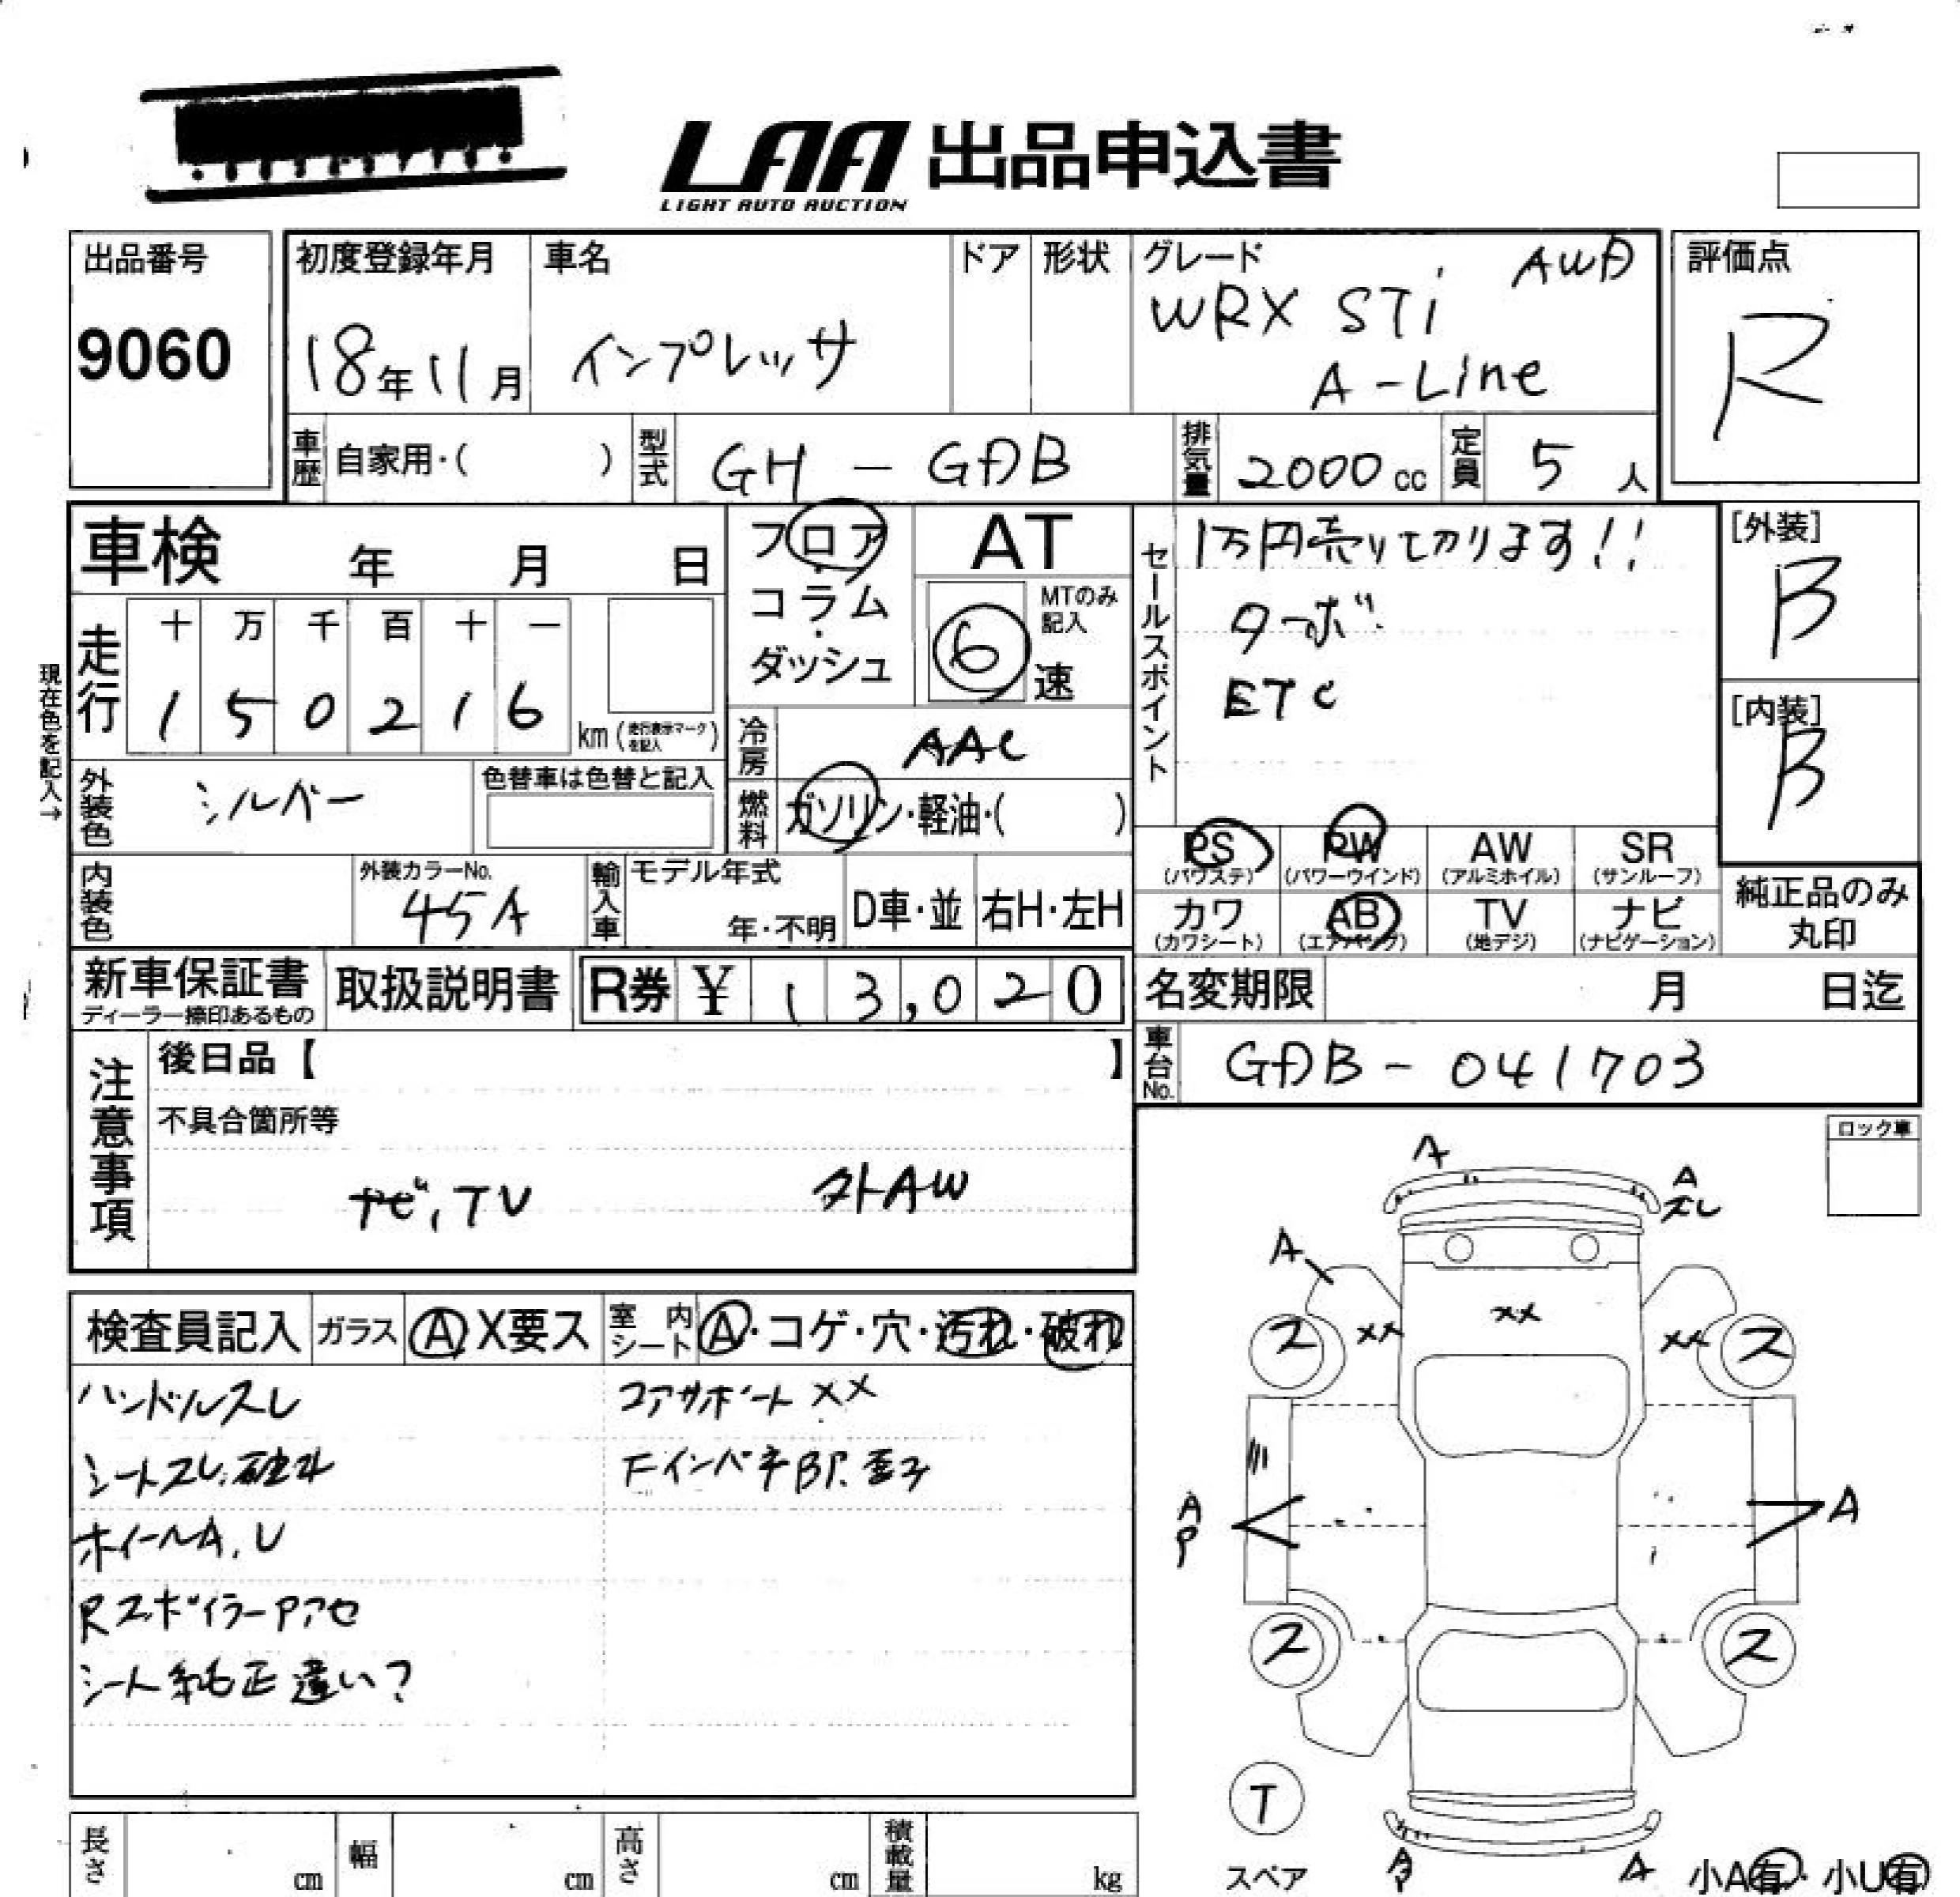 LAA 出品申込書
LIGHT AUTO AUCTION
出品番号
9060
初度登録年月
18年11月
車名
インプレッサ
ドア
形状
グレード
AWD
WRX STi
A-Line
評価点
R
車歴
自家用・( )
型式
GH - GDB
排気量
2000cc
定員
5人
車検 年 月 日
フロア
・
コラム
・
ダッシュ
AT
6
MTのみ
記入
速
セールスポイント
1万円売り切ります!!
ターボ
ETC
[外装]
B
[内装]
B
現在色を記入→
走行
十 万 千 百 十 一
1 5 0 2 1 6
km (走行表示マークを記入)
冷房
AAC
外装色
シルバー
色替車は色替と記入
燃料
ガソリン・軽油・( )
PS
(パワステ)
PW
(パワーウインド)
AW
(アルミホイル)
SR
(サンルーフ)
内装色
外装カラーNo.
45A
輸入車
モデル年式
年・不明
D車・並
右H・左H
カワ
(カワシート)
AB
(エアバック)
TV
(地デジ)
ナビ
(ナビゲーション)
純正品のみ
丸印
新車保証書
ディーラー捺印あるもの
取扱説明書
R券 ¥ 1 3,0 2 0
名変期限 月 日迄
車台No.
GDB-041703
注意事項
後日品【 】
不具合箇所等
ナビ、TV 外AW
ロック車
検査員記入
ガラス
A X要ス
室内シート
A・コゲ・穴・汚れ・破れ
ハンドルスレ
シートスレ、破れ
ホイールA,U
Rスポイラー Pアセ
シート純正違い?
コアサポート XX
A
A
ズレ
A
XX
XX
XX
ス
ス
A
P
A
ス
ス
T
スペア
A
小A有・小U有
長さ cm
幅 cm
高さ cm
積載量 kg